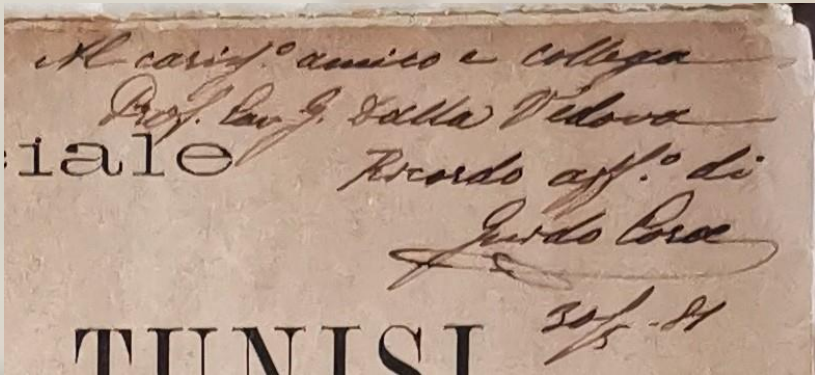 Al cariss.º amico e collega
Prof. Cav. G. Dalla Vedova
ciale
Ricordo aff.º di
Guido Cora
30/5 - 81
TUNISI